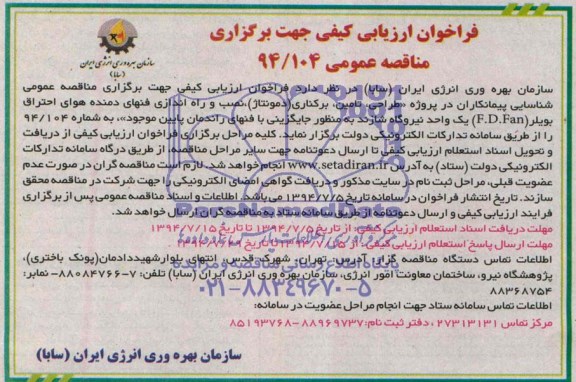 فراخوان ارزیابی کیفی جهت برگزاری
مناقصه عمومی ۹۴/۱۰۴
سازمان بهره وری انرژی ایران
(سابا)
سازمان بهره وری انرژی ایران (سابا) در نظر دارد فراخوان ارزیابی کیفی جهت برگزاری مناقصه عمومی
شناسایی پیمانکاران در پروژه «طراحی، تامین، برکناری (دمونتاژ)،نصب و راه اندازی فنهای دمنده هوای احتراق
بویلر(F.D.Fan) یک واحد نیروگاه شازند به منظور جایگزینی با فنهای راندمان پایین موجود»، به شماره ۹۴/۱۰۴
را از طریق سامانه تدارکات الکترونیکی دولت برگزار نماید. کلیه مراحل برگزاری فراخوان ارزیابی کیفی از دریافت
و تحویل اسناد استعلام ارزیابی کیفی تا ارسال دعوتنامه جهت سایر مراحل مناقصه، از طریق درگاه سامانه تدارکات
الکترونیکی دولت (ستاد) به آدرس www.setadiran.ir انجام خواهد شد. لازم است مناقصه گران در صورت عدم
عضویت قبلی، مراحل ثبت نام در سایت مذکور و دریافت گواهی امضای الکترونیکی را جهت شرکت در مناقصه محقق
سازند. تاریخ انتشار فراخوان در سامانه تاریخ ۱۳۹۴/۷/۵ می باشد. اطلاعات و اسناد مناقصه عمومی پس از برگزاری
فرایند ارزیابی کیفی و ارسال دعوتنامه از طریق سامانه ستاد به مناقصه گران ارسال خواهد شد.
مهلت دریافت اسناد استعلام ارزیابی کیفی: از تاریخ ۱۳۹۴/۷/۵ تا تاریخ ۱۳۹۴/۷/۱۵
مهلت ارسال پاسخ استعلام ارزیابی کیفی: تا تاریخ
اطلاعات تماس دستگاه مناقصه گزار: آدرس، تهران، شهرک قدس، انتهای بلوارشهیددادمان(پونک باختری)،
پژوهشگاه نیرو، ساختمان معاونت امور انرژی، سازمان بهره وری انرژی ایران (سابا) تلفن: ۷-۸۸۰۸۴۷۶۶ نمابر:
۸۸۳۶۸۷۵۴
۰۲۱-۸۸۳۴۹۶۷۰-۵
اطلاعات تماس سامانه ستاد جهت انجام مراحل عضویت در سامانه:
مرکز تماس ۲۷۳۱۳۱۳۱ ، دفتر ثبت نام: ۸۸۹۶۹۷۳۷-۸۵۱۹۳۷۶۸
سازمان بهره وری انرژی ایران (سابا)